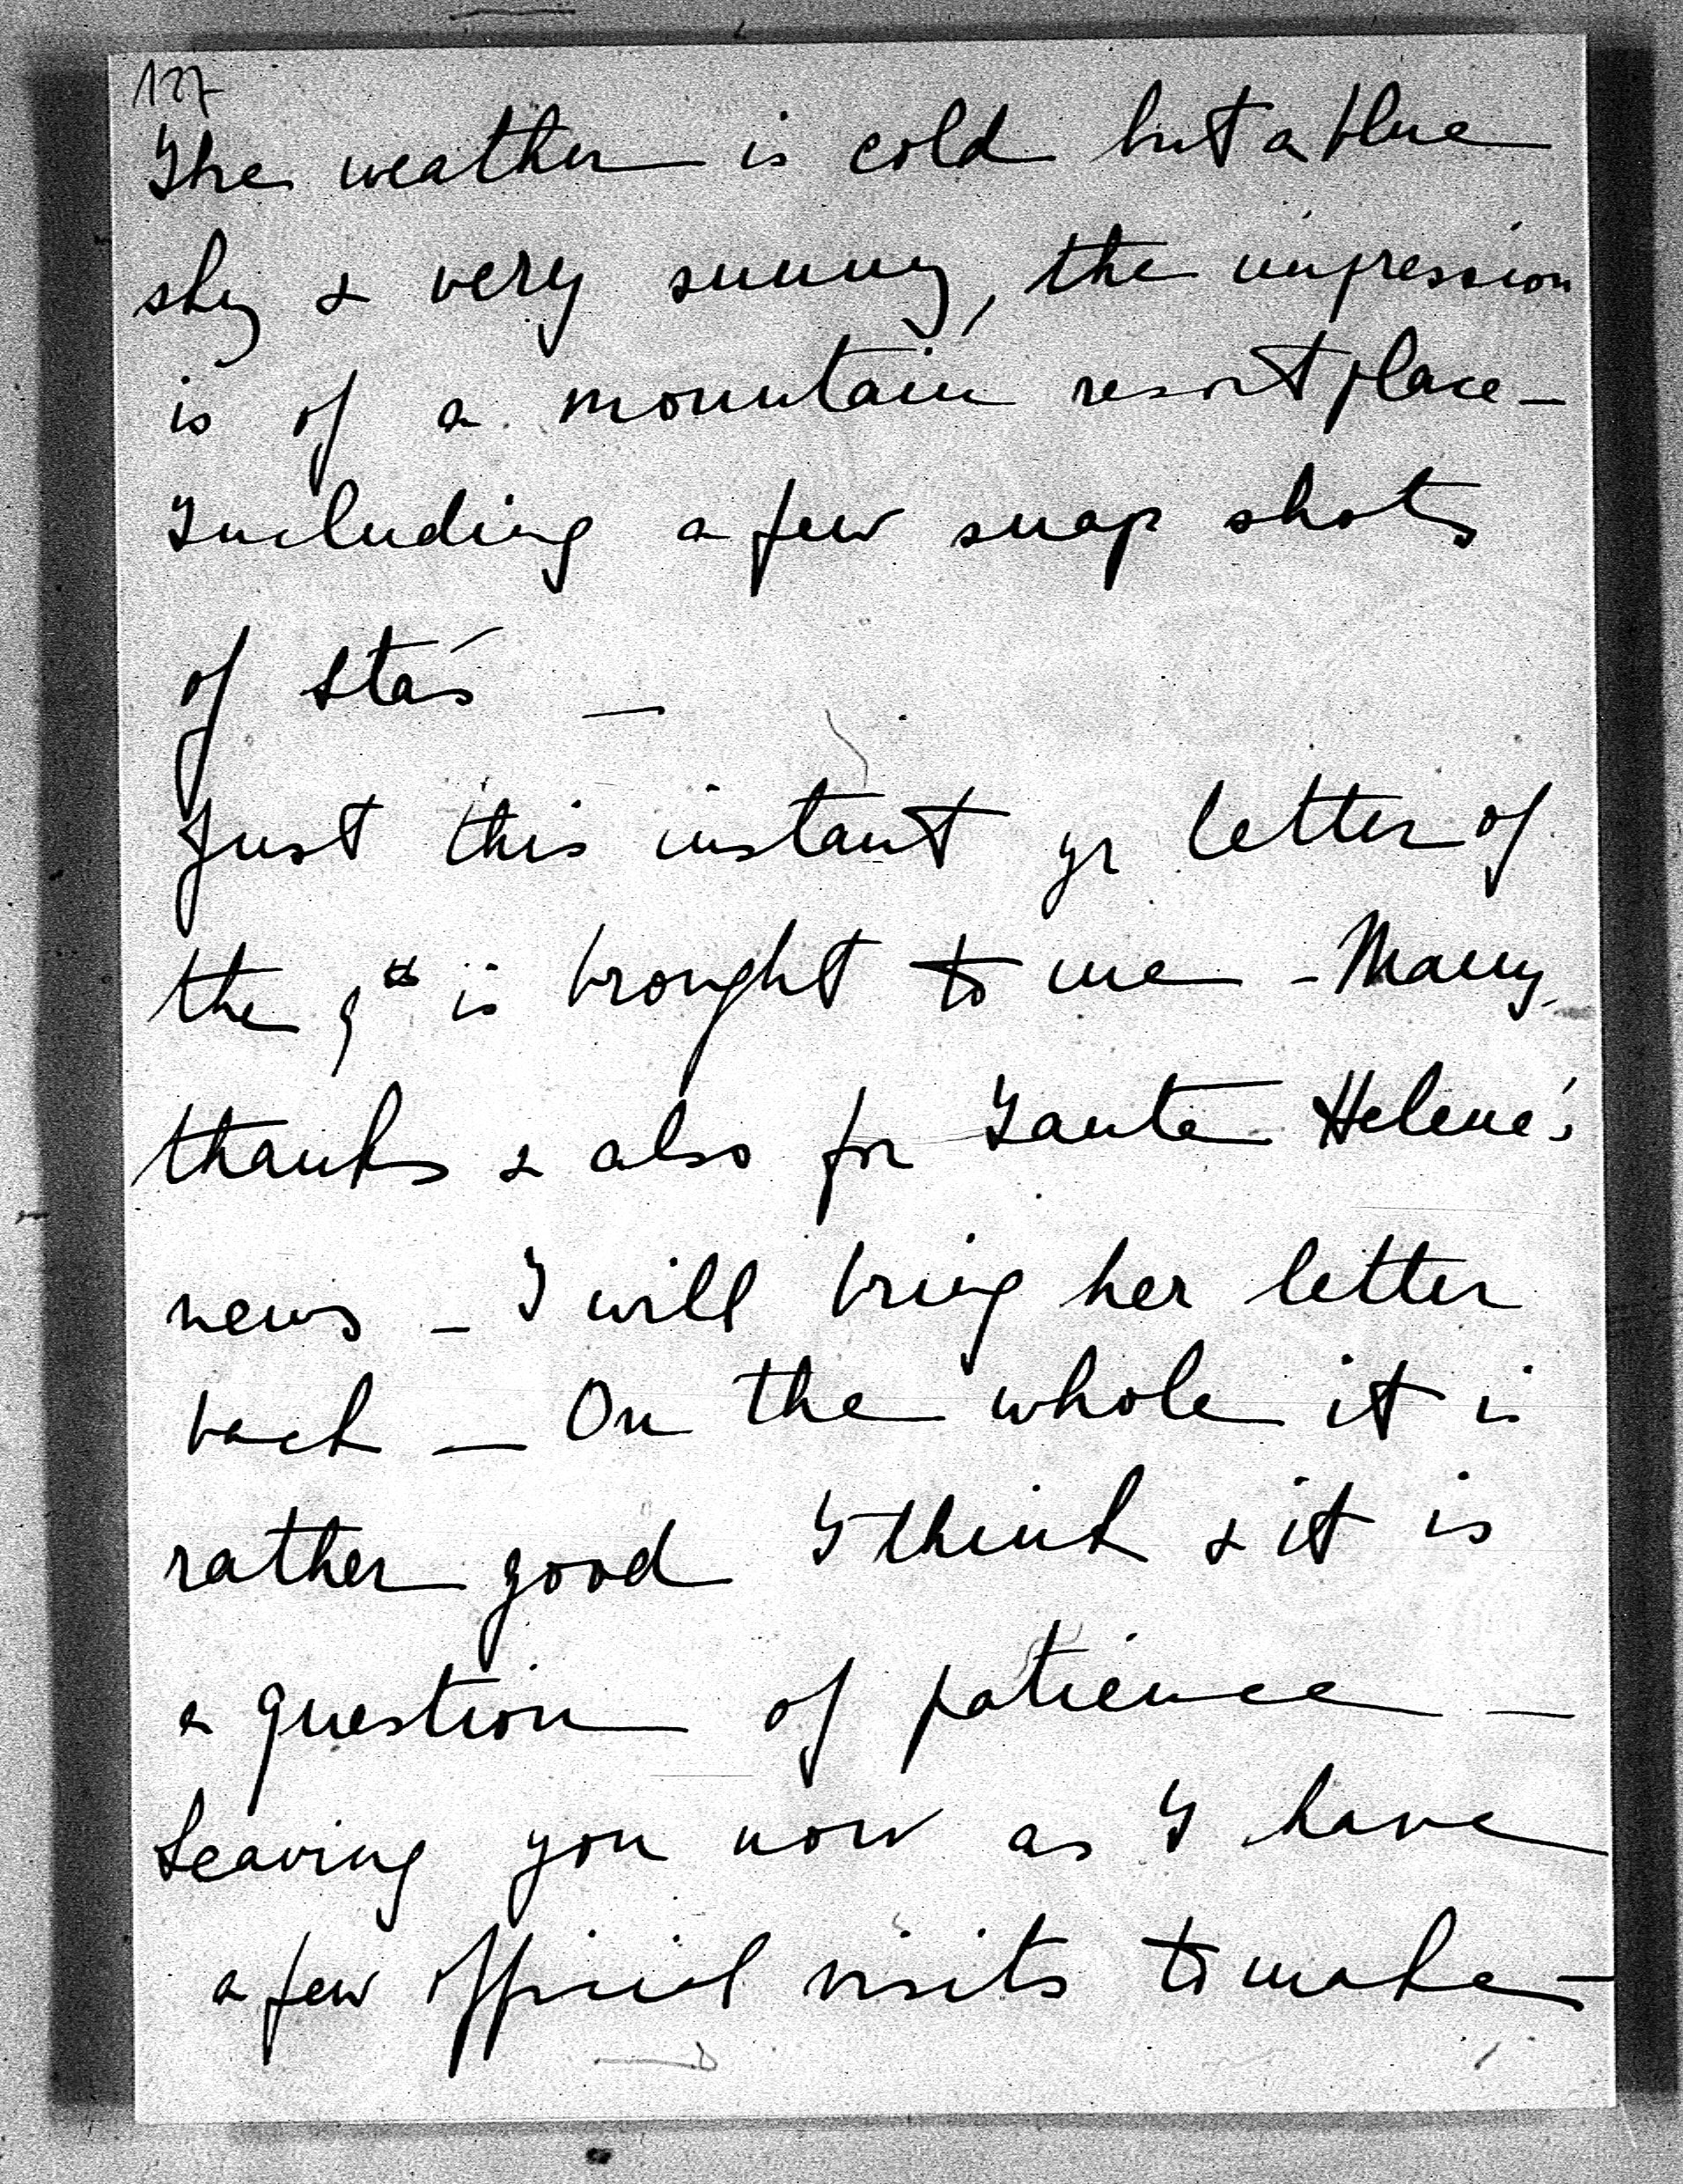 127
The weather is cold but a blue
sky & very sunny, the impression
is of a mountain resort place –
Including a few snap shots
of Staś –
Just this instant yr letter of
the 9th is brought to me – Many
thanks & also for Tante Helene's
news – I will bring her letter
back – On the whole it is
rather good I think & it is
a question of patience –
Leaving you now as I have
a few official visits to make –